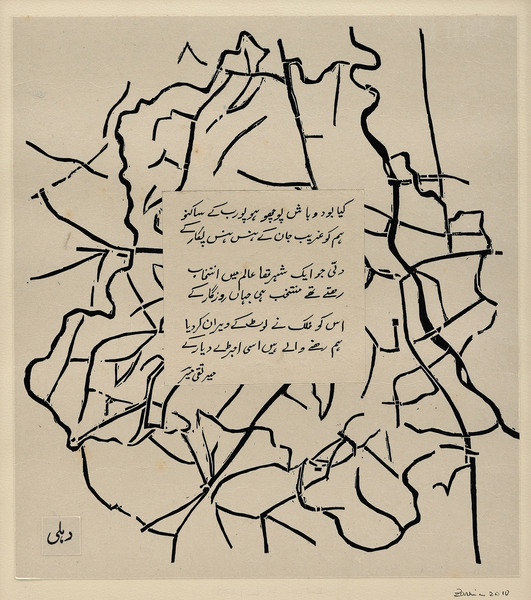 کیا بود و باش پوچھو ہو پورب کے ساکنو
ہم کو غریب جان کے ہنس ہنس پکار کے
دلّی جو ایک شہر تھا عالم میں انتخاب
رہتے تھے منتخب ہی جہاں روزگار کے
اس کو فلک نے لوٹ کے ویران کر دیا
ہم رہنے والے ہیں اسی اجڑے دیار کے
میر تقی میر
دہلی
Zarina 2010